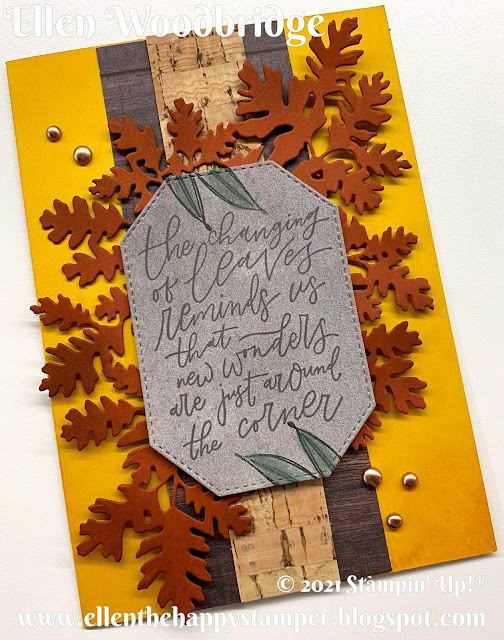 Ellen Woodbridge
the changing
of leaves
reminds us
that
new wonders
are just around
the corner
© 2021 Stampin' Up!®
www.ellenthehappystamper.blogspot.com